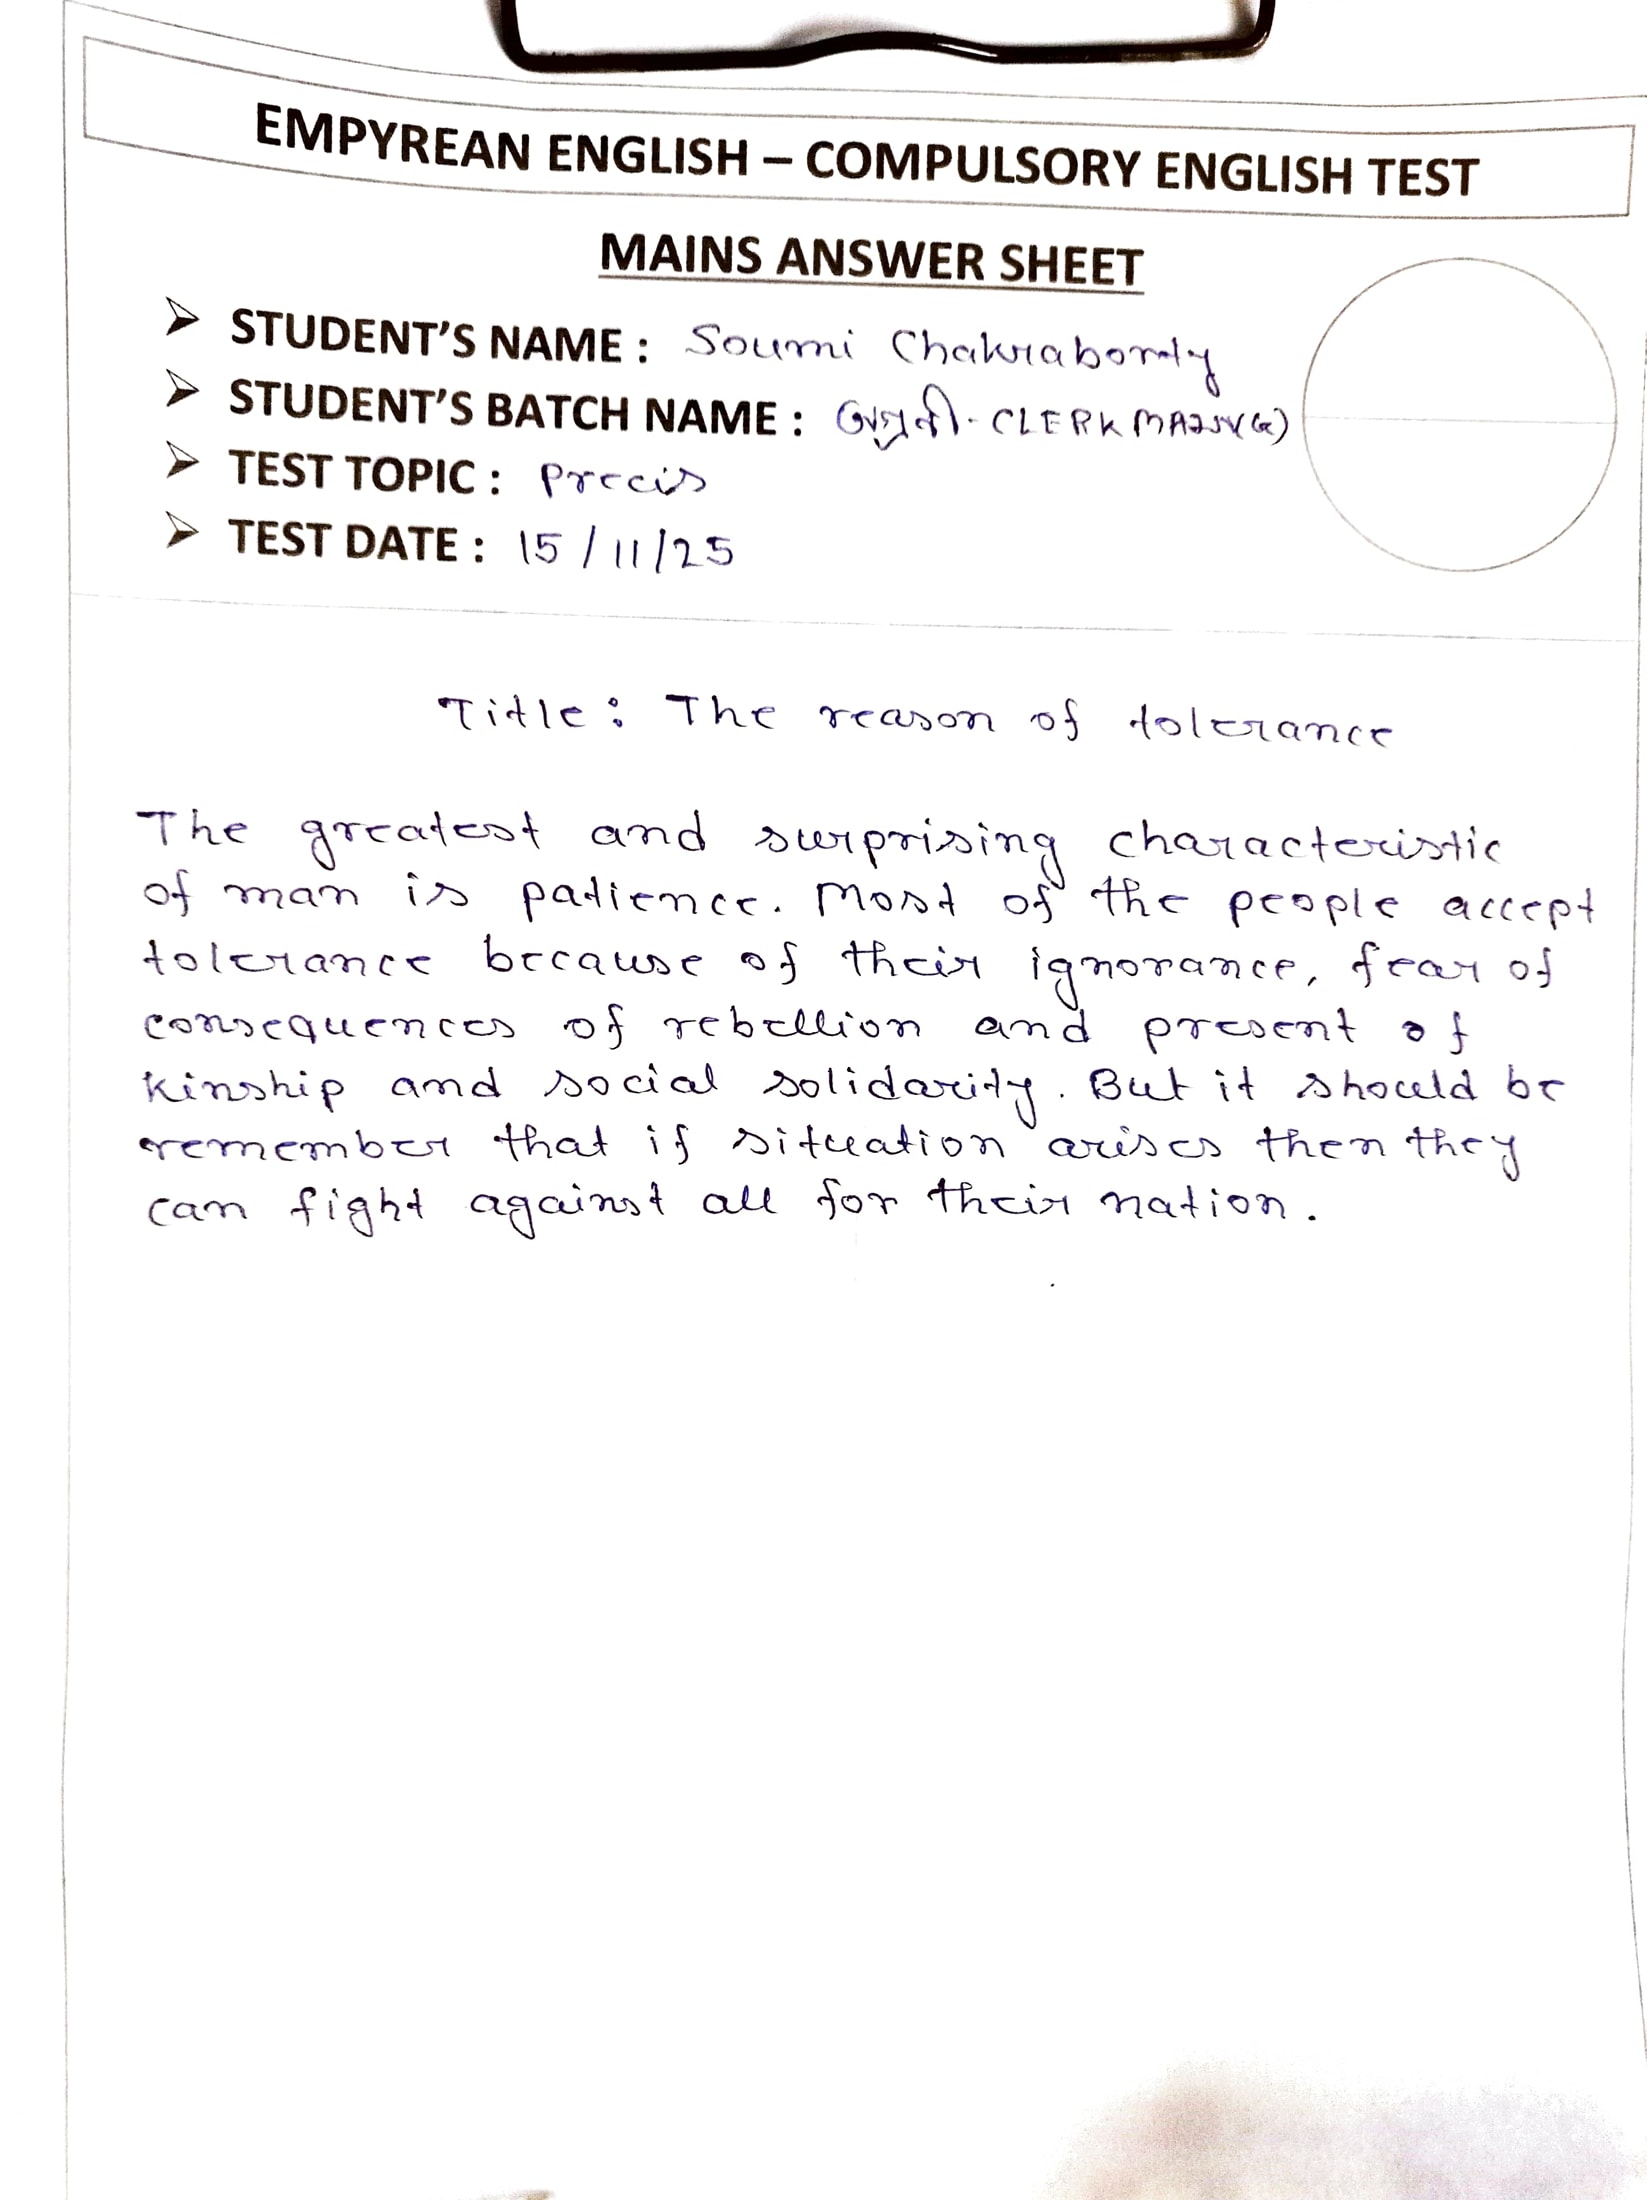 EMPYREAN ENGLISH – COMPULSORY ENGLISH TEST
MAINS ANSWER SHEET
➢ STUDENT'S NAME : Soumi Chakraborty
➢ STUDENT'S BATCH NAME : CLERK
➢ TEST TOPIC : Precis
➢ TEST DATE : 15/11/25
Title : The reason of tolerance
The greatest and surprising characteristic
of man is patience. Most of the people accept
tolerance because of their ignorance, fear of
consequences of rebellion and present of
kinship and social solidarity. But it should be
remember that if situation arises then they
can fight against all for their nation.